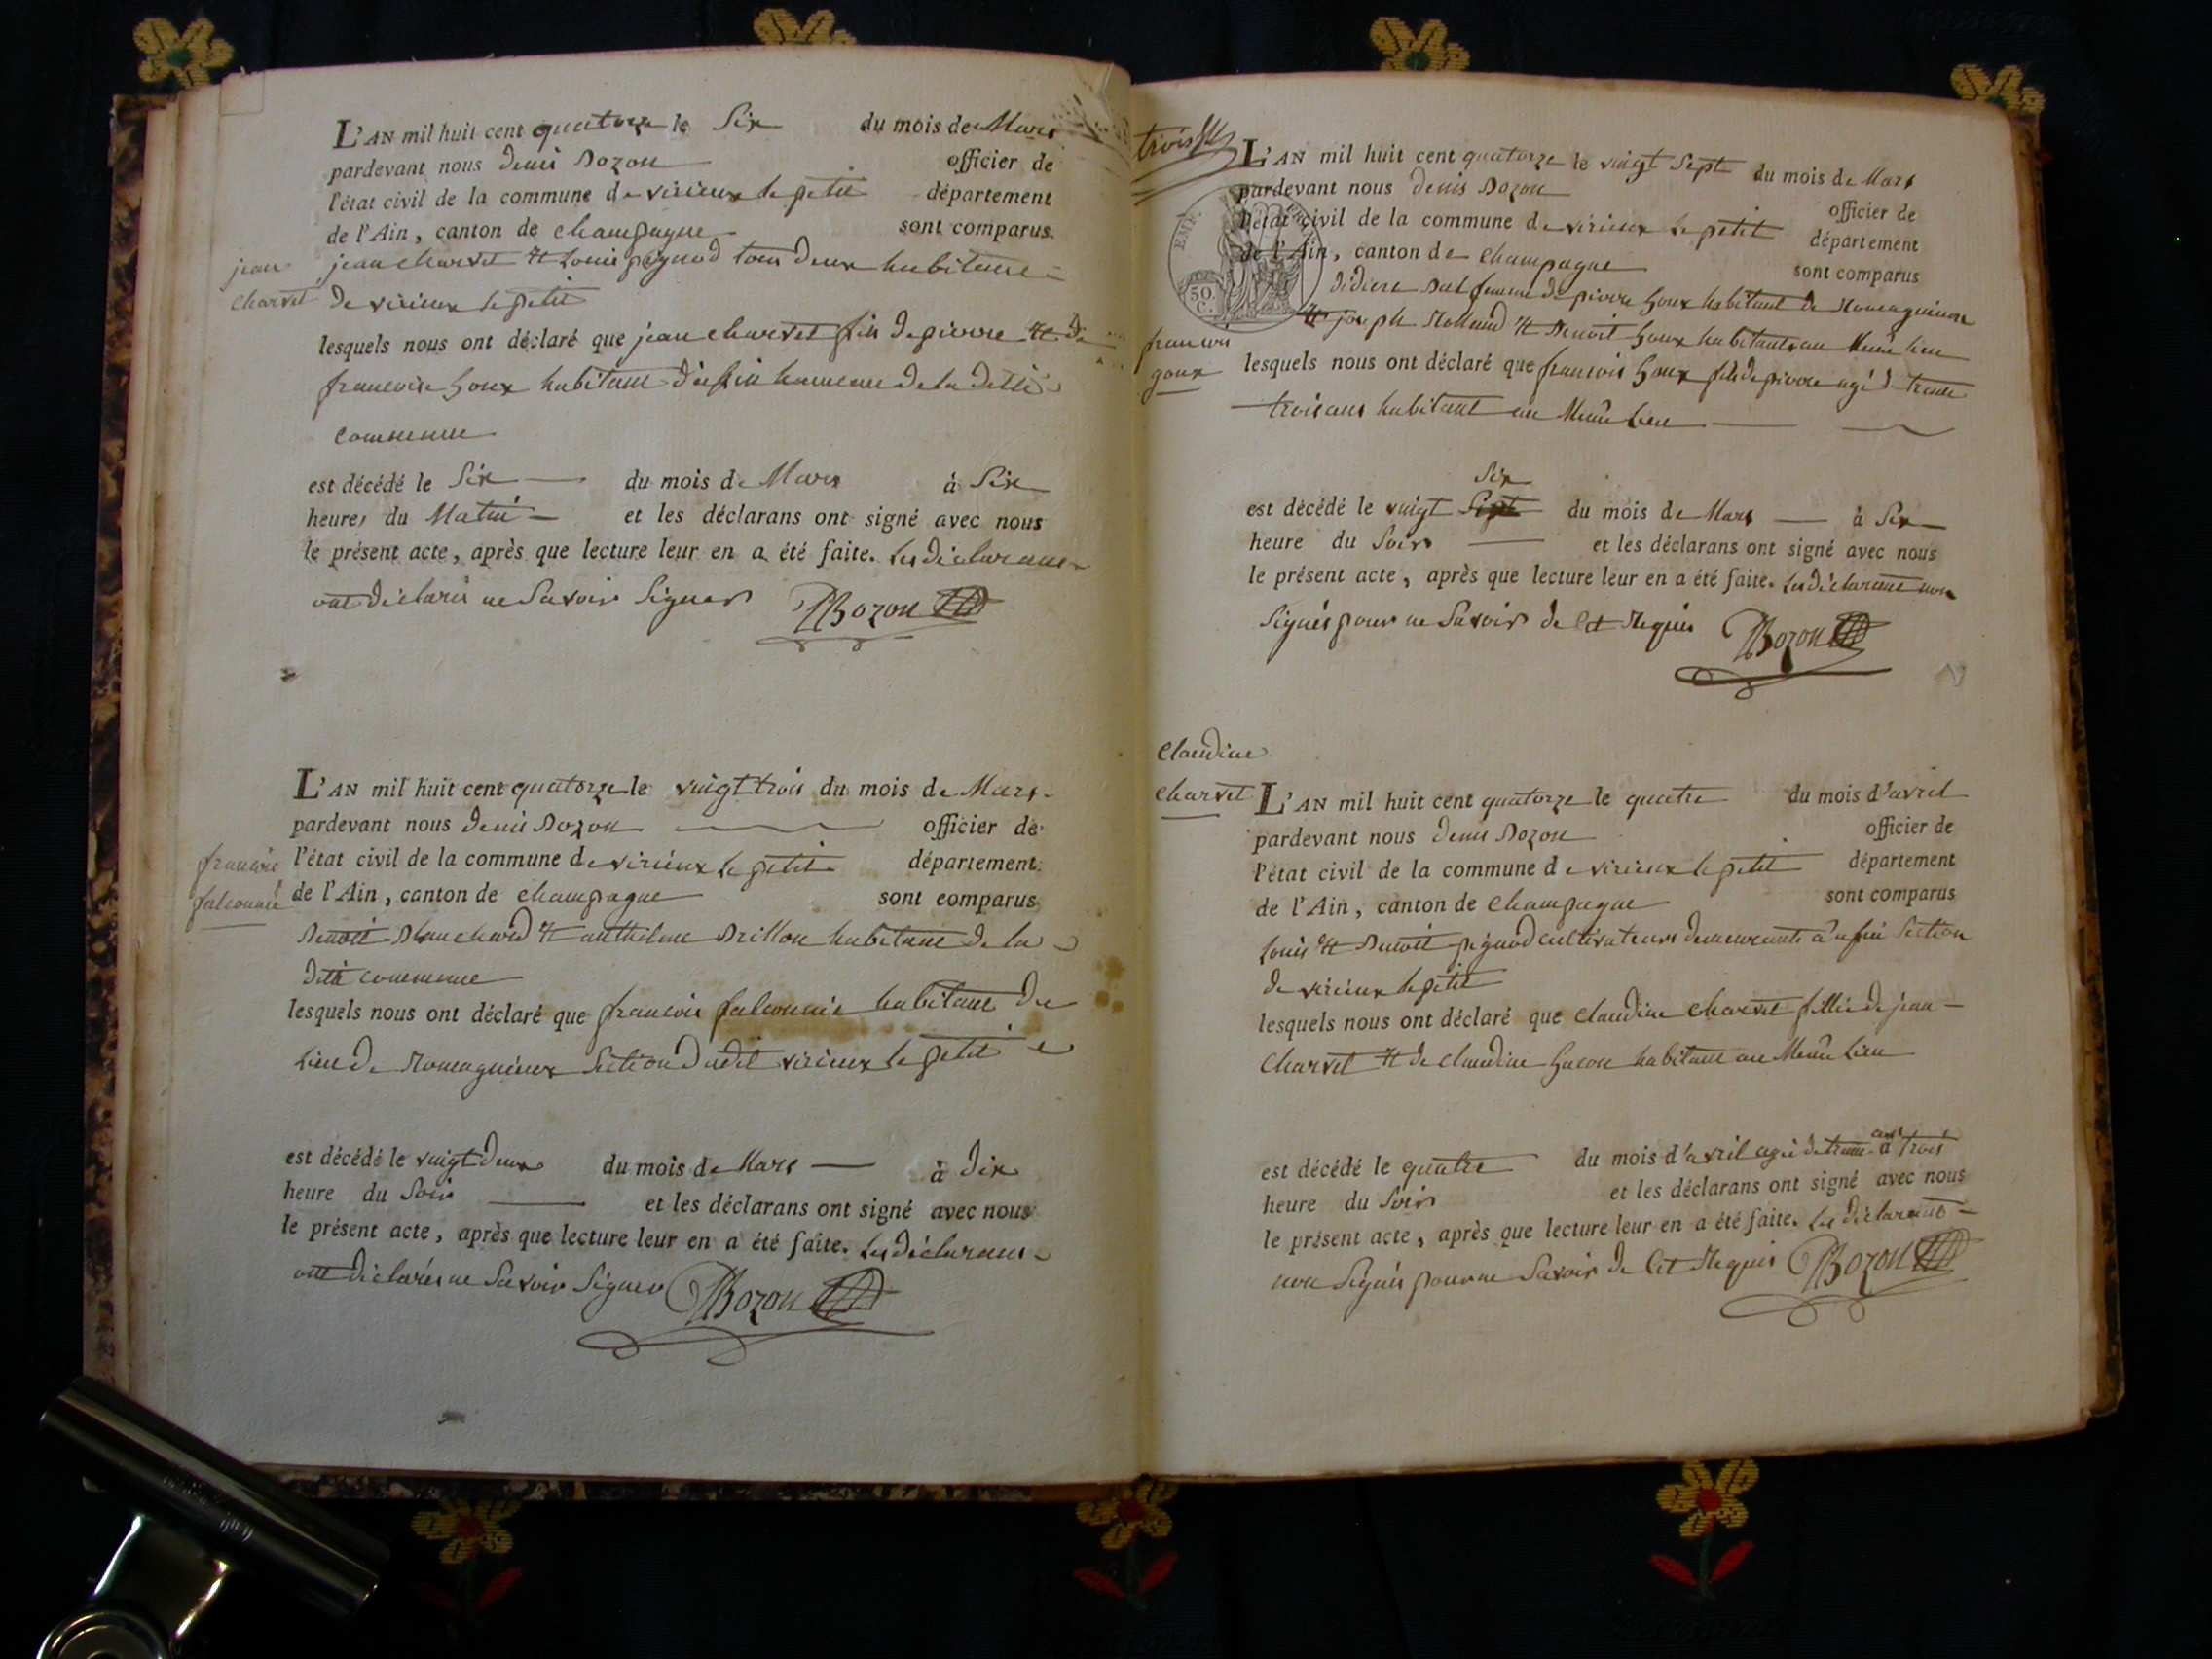 L'AN mil huit cent quatorze le Six du mois de Mars
pardevant nous denis Bozon officier de
l'état civil de la commune de virieux le petit département
de l'Ain, canton de champagne sont comparus
jean charvet et Louis pegnod tous deux habitans
de virieux le petit
jean
charvet
lesquels nous ont déclaré que jean charvet fils de pierre et de
francoise goux habitant hameau de la ditte
commune
est décédé le Six du mois de Mars à Six
heures du Matin et les déclarans ont signé avec nous
le présent acte, après que lecture leur en a été faite. Les déclarans
ont déclarés ne Savoir Signer DBozon
L'AN mil huit cent quatorze le vingt trois du mois de Mars
pardevant nous denis Bozon officier de
l'état civil de la commune de virieux le petit département
de l'Ain, canton de champagne sont comparus
francois
falconnié
Benoit Blanchard et anthelme Brillon habitans de la
ditte commune
lesquels nous ont déclaré que francois falconnié habitant du
Lieu de Romagnieux Section dudit virieux le petit
est décédé le vingt deux du mois de Mars à dix
heure du Soir et les déclarans ont signé avec nous
le présent acte, après que lecture leur en a été faite. Les déclarans
ont déclarés ne Savoir Signer DBozon
trois
L'AN mil huit cent quatorze le vingt Sept du mois de Mars
pardevant nous denis Bozon officier de
l'état civil de la commune de virieux le petit département
de l'Ain, canton de champagne sont comparus
EMP.
50.
C.
femme de pierre goux habitant de Romagnieux
et joseph Rolland et Benoit goux habitants au Même lieu
francois
goux
lesquels nous ont déclaré que francois goux fils de pierre agé de trente
trois ans habitant au Même Lieu
Six
est décédé le vingt Sept du mois de Mars à Six
heure du Soir et les déclarans ont signé avec nous
le présent acte, après que lecture leur en a été faite. Les déclarants non
Signés pour ne Savoir de Cet Requis DBozon
Claudine
charvet
L'AN mil huit cent quatorze le quatre du mois d'avril
pardevant nous denis Bozon officier de
l'état civil de la commune de virieux le petit département
de l'Ain, canton de Champagne sont comparus
Louis et Benoit pegnod cultivateurs demeurants Section
de virieux le petit
lesquels nous ont déclaré que Claudine Charvet fille de jean
Charvet et de Claudine habitant au Même Lieu
est décédé le quatre du mois d'avril agée de trente ans à trois
heure du Soir et les déclarans ont signé avec nous
le présent acte, après que lecture leur en a été faite. Les déclarants
non Signés pour ne Savoir de Cet Requis DBozon